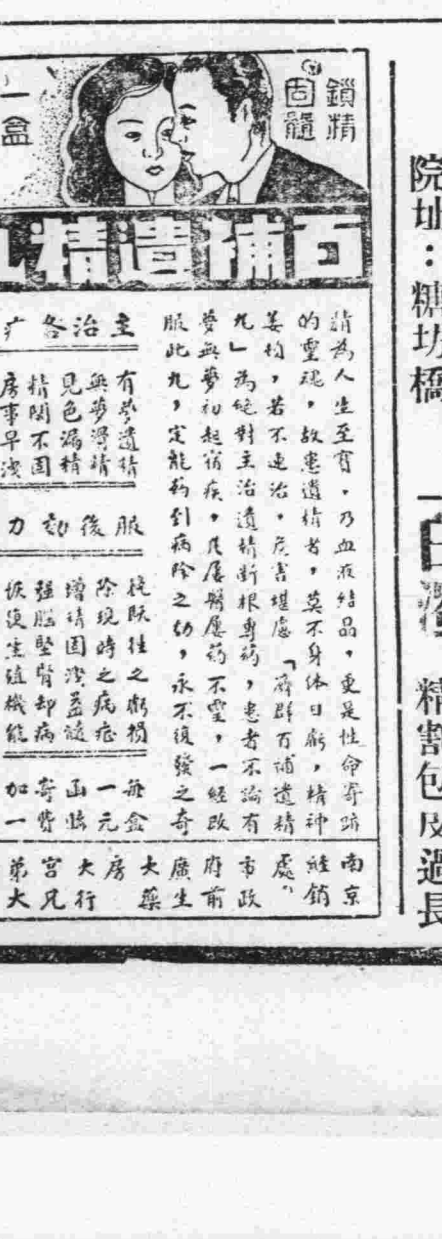 院址：糖坊橋
精割包皮過長
鎖精
固髓
一盒
百補遺精丸
精為人生至寶，乃血液結晶，更是性命寄跡
的靈魂，故患遺精者，莫不身体日虧，精神
萎枸，若不速治，危害堪慮「濟群百補遺精
丸」為絕對主治遺精斷根專药，患者不論有
夢無夢初起宿疾，凡屢醫屢药不靈，一經改
服此丸，定能药到病除之効，永不復發之奇
主治各疒
有夢遺精
無夢滑精
見色漏精
精関不固
房事早洩
服後効力
挽既往之虧損
除現時之病症
增精固澀益髓
强腦堅腎却病
恢復生殖機能
每盒
一元
函購
寄費
加一
南京
經銷
處：
市政
府前
廣生
大藥
房
大行
宮兄
弟大